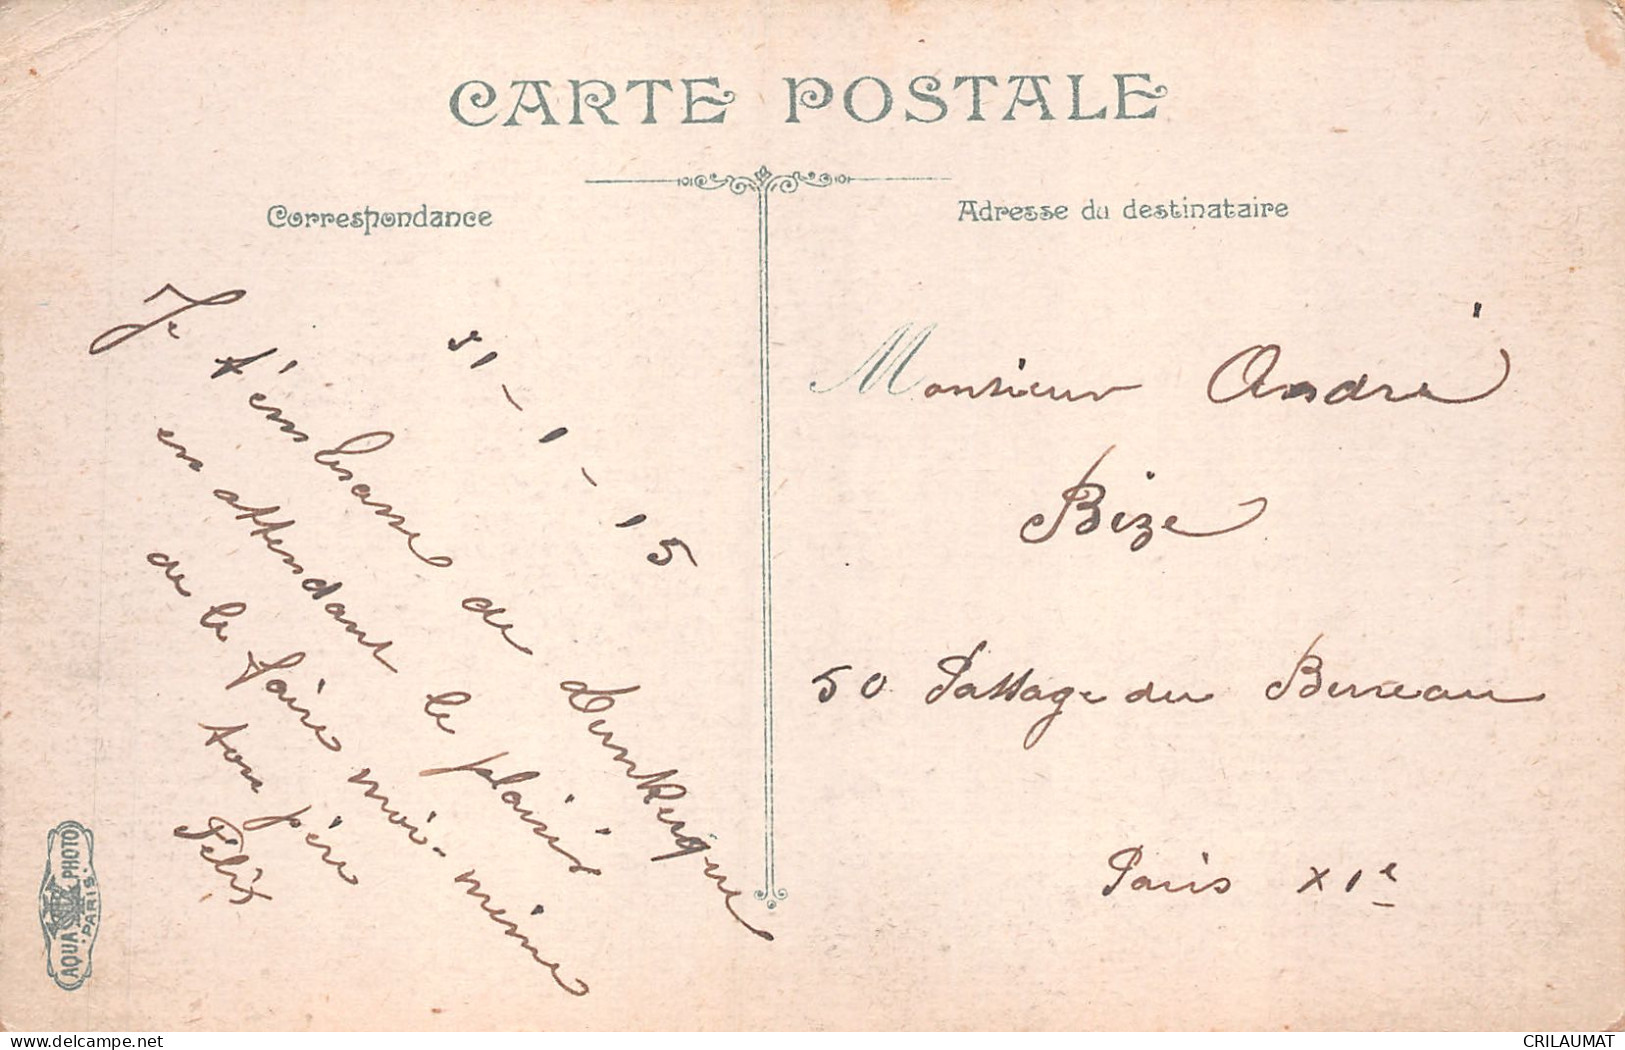 CARTE POSTALE
Correspondance
Adresse du destinataire
51-1-15
Je t'embrasse de Dunkerque
en attendant le plaisir
de le faire moi-même
ton père
Félix
Monsieur André
Bize
50 Passage du Bureau
Paris XIe
AQUA PHOTO
PARIS
www.delcampe.net
CRILAUMAT